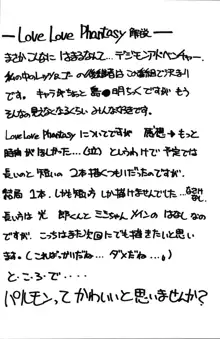 —Love Love Phantasy 解説—
まさかこんなにはまるなんて…デジモンアドベンチャー。
私の中のレッツ&ゴーの後継者はこの番組で決まり
です。キャラがちょっと
そんなの見えなくなるくらいみんな好きです。
Love Love Phantasy についてですが
時間がほしかった…(泣)というわけで予定では
長いのと短いの2本描くつもりだったのですが、
結局1本、しかも短いのしか描けませんでした…
長い方は光 郎くんとミミちゃんメインのはなしなの
ですが、こっちはまた次回にでも描きたいと思い
ます。(こればっかりだね…ダメだね…。)
と・ころ・で・・・・
パルモンってかわいいと思いませんか?